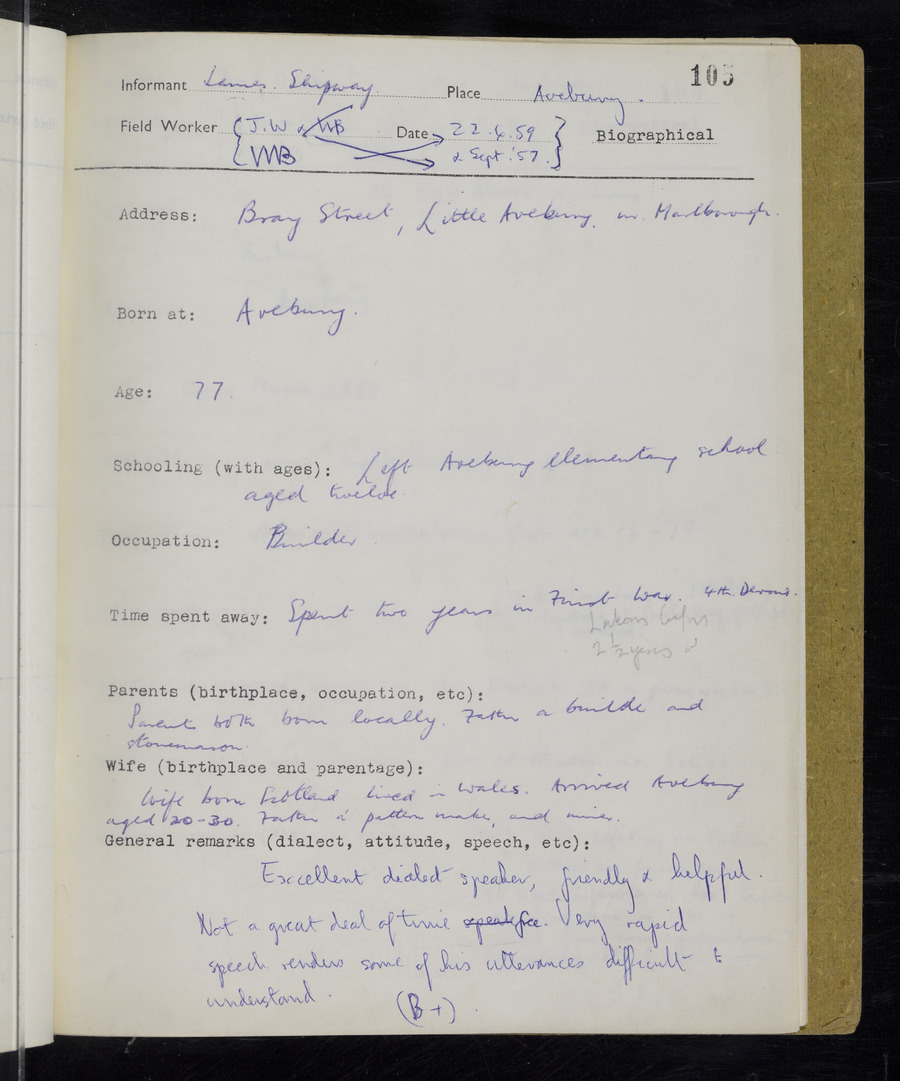 105
Informant James. Shipway Place Avebury.
Field Worker { J.W & WB Date 22.4.59 } Biographical
{ WB & Sept. '57. }
Address: Bray Street, Little Avebury, nr. Marlborough.
Born at: Avebury.
Age: 77.
Schooling (with ages): Left Avebury elementary school
aged twelve.
Occupation: Builder.
Time spent away: Spent two years in First War. 4th. Devons.
2½ years
Parents (birthplace, occupation, etc):
Parents both born locally. Father a builder and
stonemason.
Wife (birthplace and parentage):
Wife born Scotland lived in Wales. Arrived Avebury
aged 20-30. Father a pattern maker, and miner.
General remarks (dialect, attitude, speech, etc):
Excellent dialect speaker, friendly & helpful.
Not a great deal of time. Very rapid
speech renders some of his utterances difficult to
understand.
(B+)